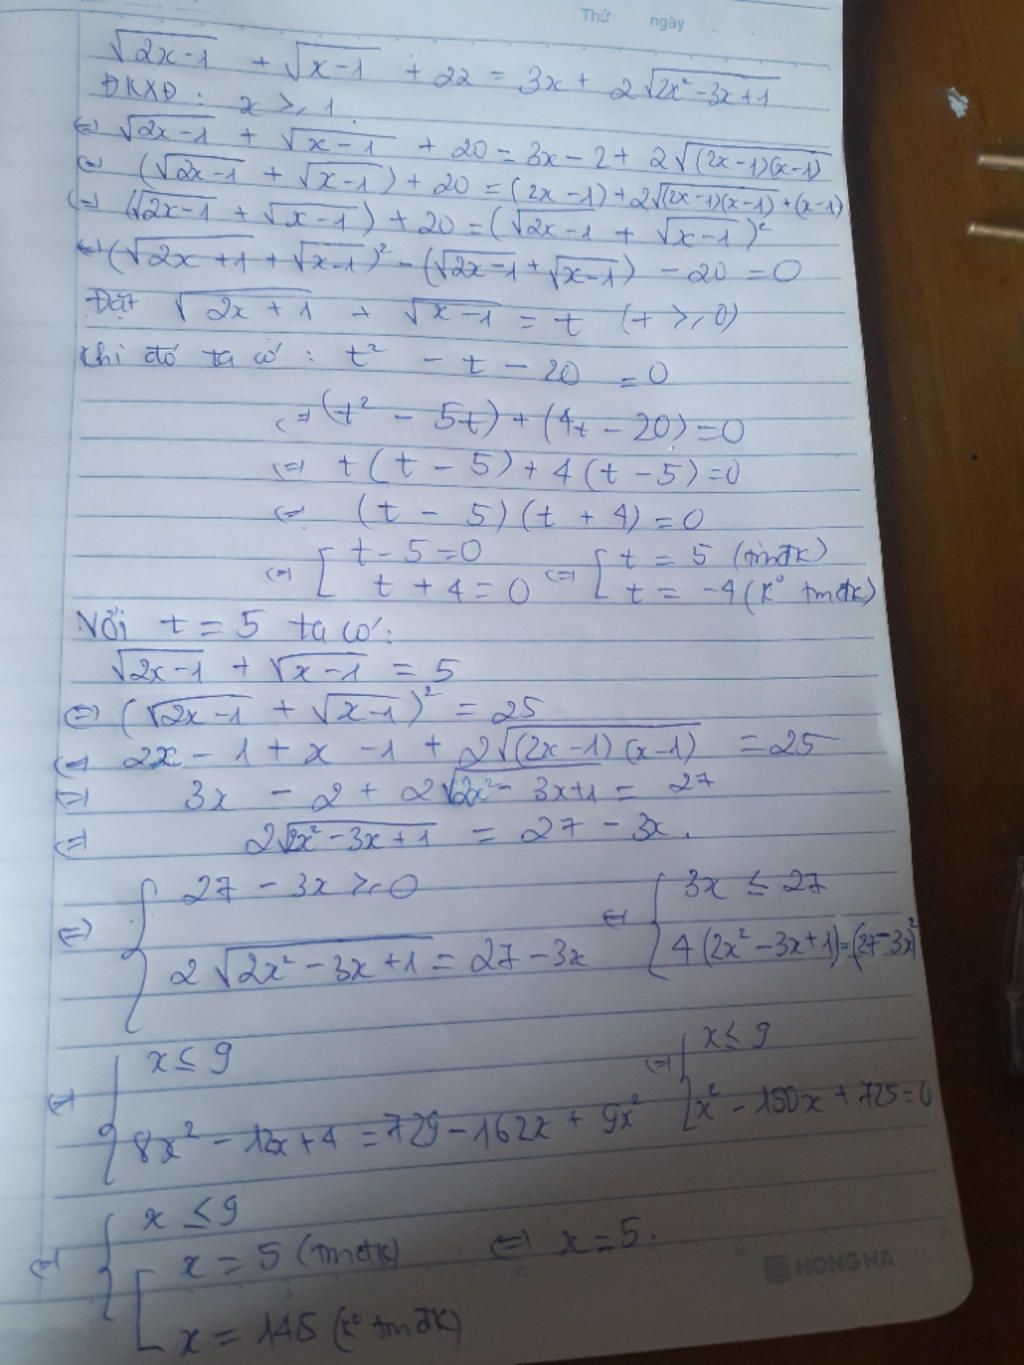 Thứ ngày
√(2x-1) + √(x-1) + 22 = 3x + 2√(2x²-3x+1)
ĐKXĐ: x ≥ 1.
⇔ √(2x-1) + √(x-1) + 20 = 3x - 2 + 2√((2x-1)(x-1))
⇔ (√(2x-1) + √(x-1)) + 20 = (2x-1) + 2√((2x-1)(x-1)) + (x-1)
⇔ (√(2x-1) + √(x-1)) + 20 = (√(2x-1) + √(x-1))²
⇔ (√(2x+1) + √(x-1))² - (√(2x-1) + √(x-1)) - 20 = 0
Đặt √(2x+1) + √(x-1) = t (t ≥ 0)
Khi đó ta có: t² - t - 20 = 0
⇔ (t² - 5t) + (4t - 20) = 0
⇔ t(t - 5) + 4(t - 5) = 0
⇔ (t - 5)(t + 4) = 0
⇔ [ t - 5 = 0 ⇔ [ t = 5 (tmđk)
t + 4 = 0 t = -4 (k° tmđk)
Với t = 5 ta có:
√(2x-1) + √(x-1) = 5
⇔ (√(2x-1) + √(x-1))² = 25
⇔ 2x - 1 + x - 1 + 2√((2x-1)(x-1)) = 25
⇔ 3x - 2 + 2√(2x²-3x+1) = 27
⇔ 2√(2x²-3x+1) = 27 - 3x.
⇔ { 27 - 3x ≥ 0 ⇔ { 3x ≤ 27
2√(2x²-3x+1) = 27 - 3x 4(2x²-3x+1) = (27-3x)²
⇔ { x ≤ 9 ⇔ { x ≤ 9
8x² - 12x + 4 = 729 - 162x + 9x² x² - 150x + 725 = 0
⇔ { x ≤ 9
[ x = 5 (tmđk) ⇔ x = 5.
x = 145 (k° tmđk)
HONG HA